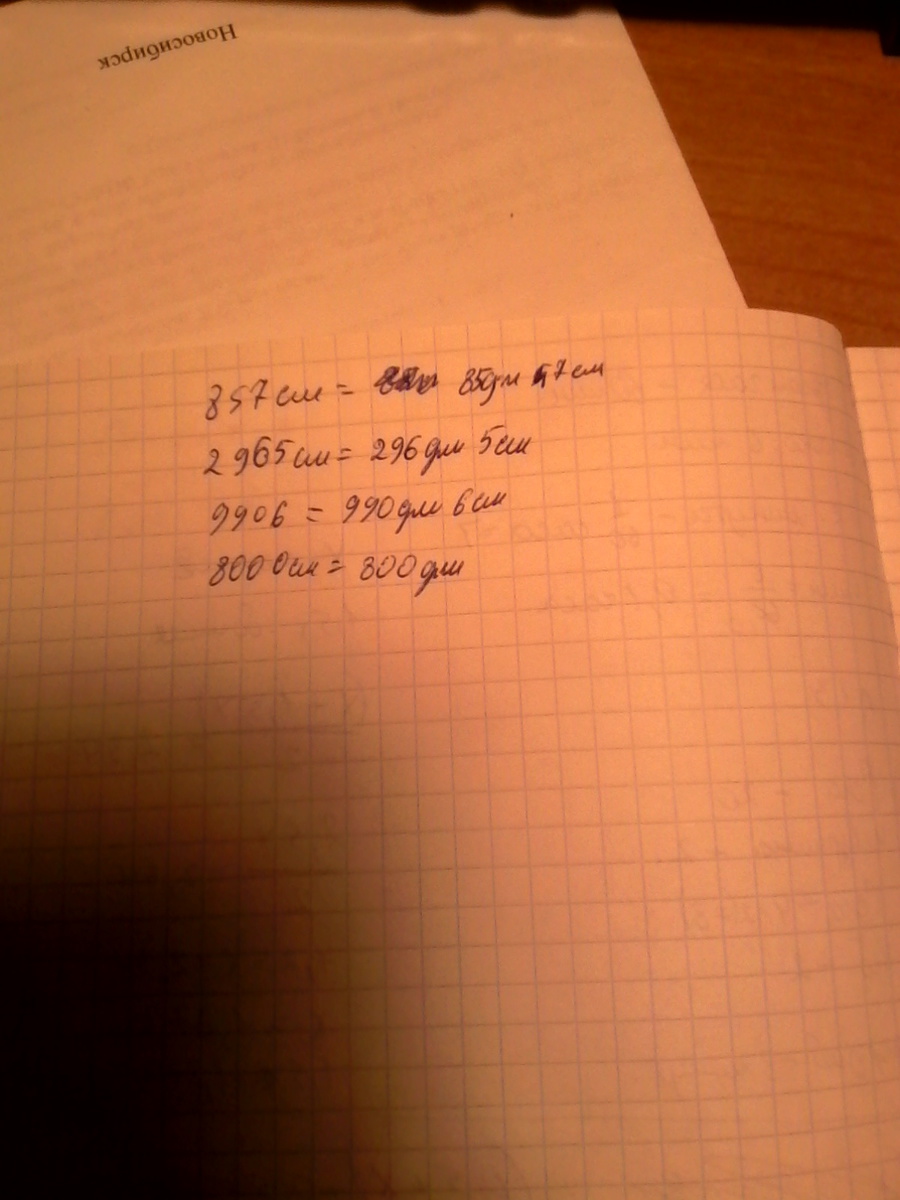 Новосибирск
857 см = 85дм 7 см
2965 см = 296 дм 5 см
9906 = 990 дм 6 см
8000 см = 800 дм